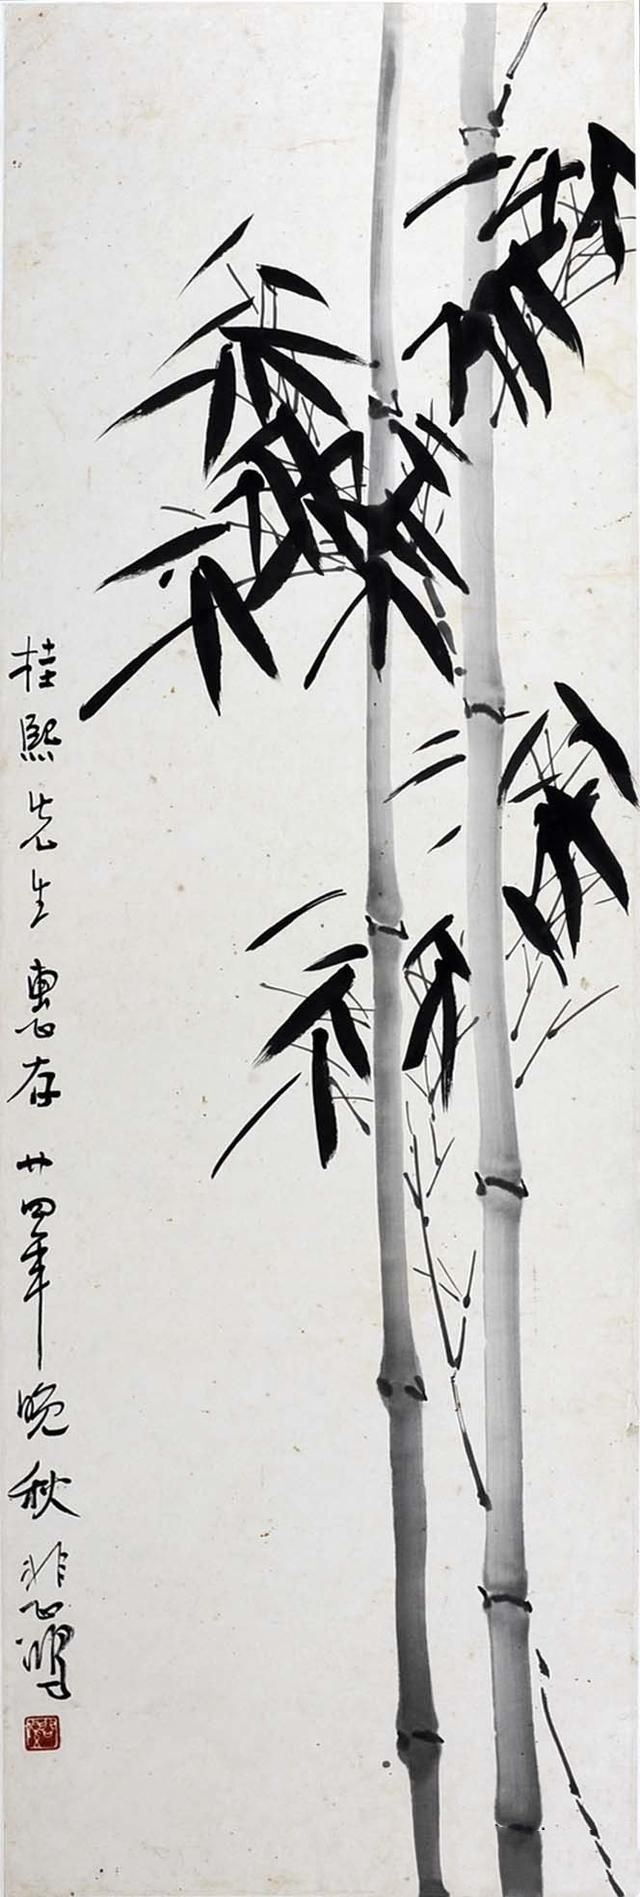 桂熙先生惠存廿四年晚秋悲鸿